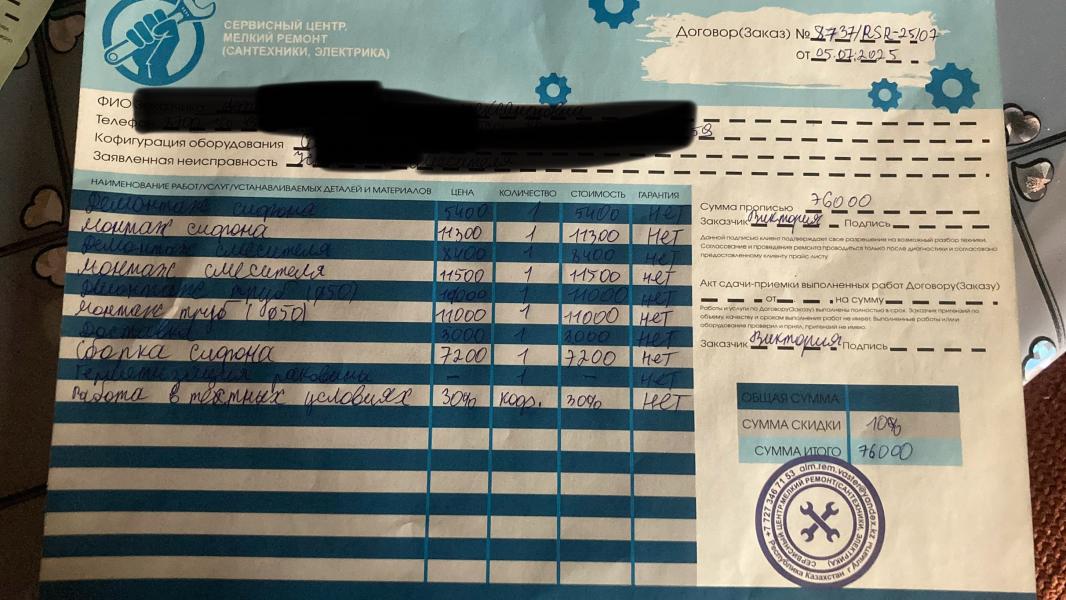 СЕРВИСНЫЙ ЦЕНТР.
МЕЛКИЙ РЕМОНТ
(САНТЕХНИКИ, ЭЛЕКТРИКА)
Договор(Заказ) № 8737/RSR-25/07
от 05.07.2025
ФИО
Кофигурация оборудования
Заявленная неисправность
НАИМЕНОВАНИЕ РАБОТ/УСЛУГ/УСТАНАВЛИВАЕМЫХ ДЕТАЛЕЙ И МАТЕРИАЛОВ ЦЕНА КОЛИЧЕСТВО СТОИМОСТЬ ГАРАНТИЯ
Демонтаж сифона 5400 1 5400 нет
Монтаж сифона 11300 1 11300 нет
Демонтаж смесителя 8400 1 8400 нет
Монтаж смесителя 11500 1 11500 нет
Демонтаж труб (ø50) 1 11000 нет
Монтаж труб (ø50) 11000 1 11000 нет
Доставка 3000 1 3000 нет
Сборка сифона 7200 1 7200 нет
Герметизация раковины – 1 – нет
Работа в тесных условиях 30% коэф. 30% нет
Сумма прописью 76000
Заказчик Виктория Подпись
Данной подписью клиент подтверждает свое разрешение на возможный разбор техники.
Согласование и проведение ремонта проводиться только после диагностики и согласовано
предоставленному клиенту прайс листу
Акт сдачи-приемки выполненных работ Договору(Заказу)
от на сумму
Работы и услуги по Договору(Заказу) выполнены полностью в срок. Заказчик претензий по
объему, качеству и срокам выполнения работ не имеет. Выполненные работы и/или
оборудование проверил и принял, притензий не имею.
Заказчик Виктория Подпись
ОБЩАЯ СУММА
СУММА СКИДКИ 10%
СУММА ИТОГО 76000
+7 727 346 71 53 alm.rem.vaster@yandex.kz
СЕРВИСНЫЙ ЦЕНТР.МЕЛКИЙ РЕМОНТ(САНТЕХНИКИ, ЭЛЕКТРИКА)
Республика Казахстан г.Алматы